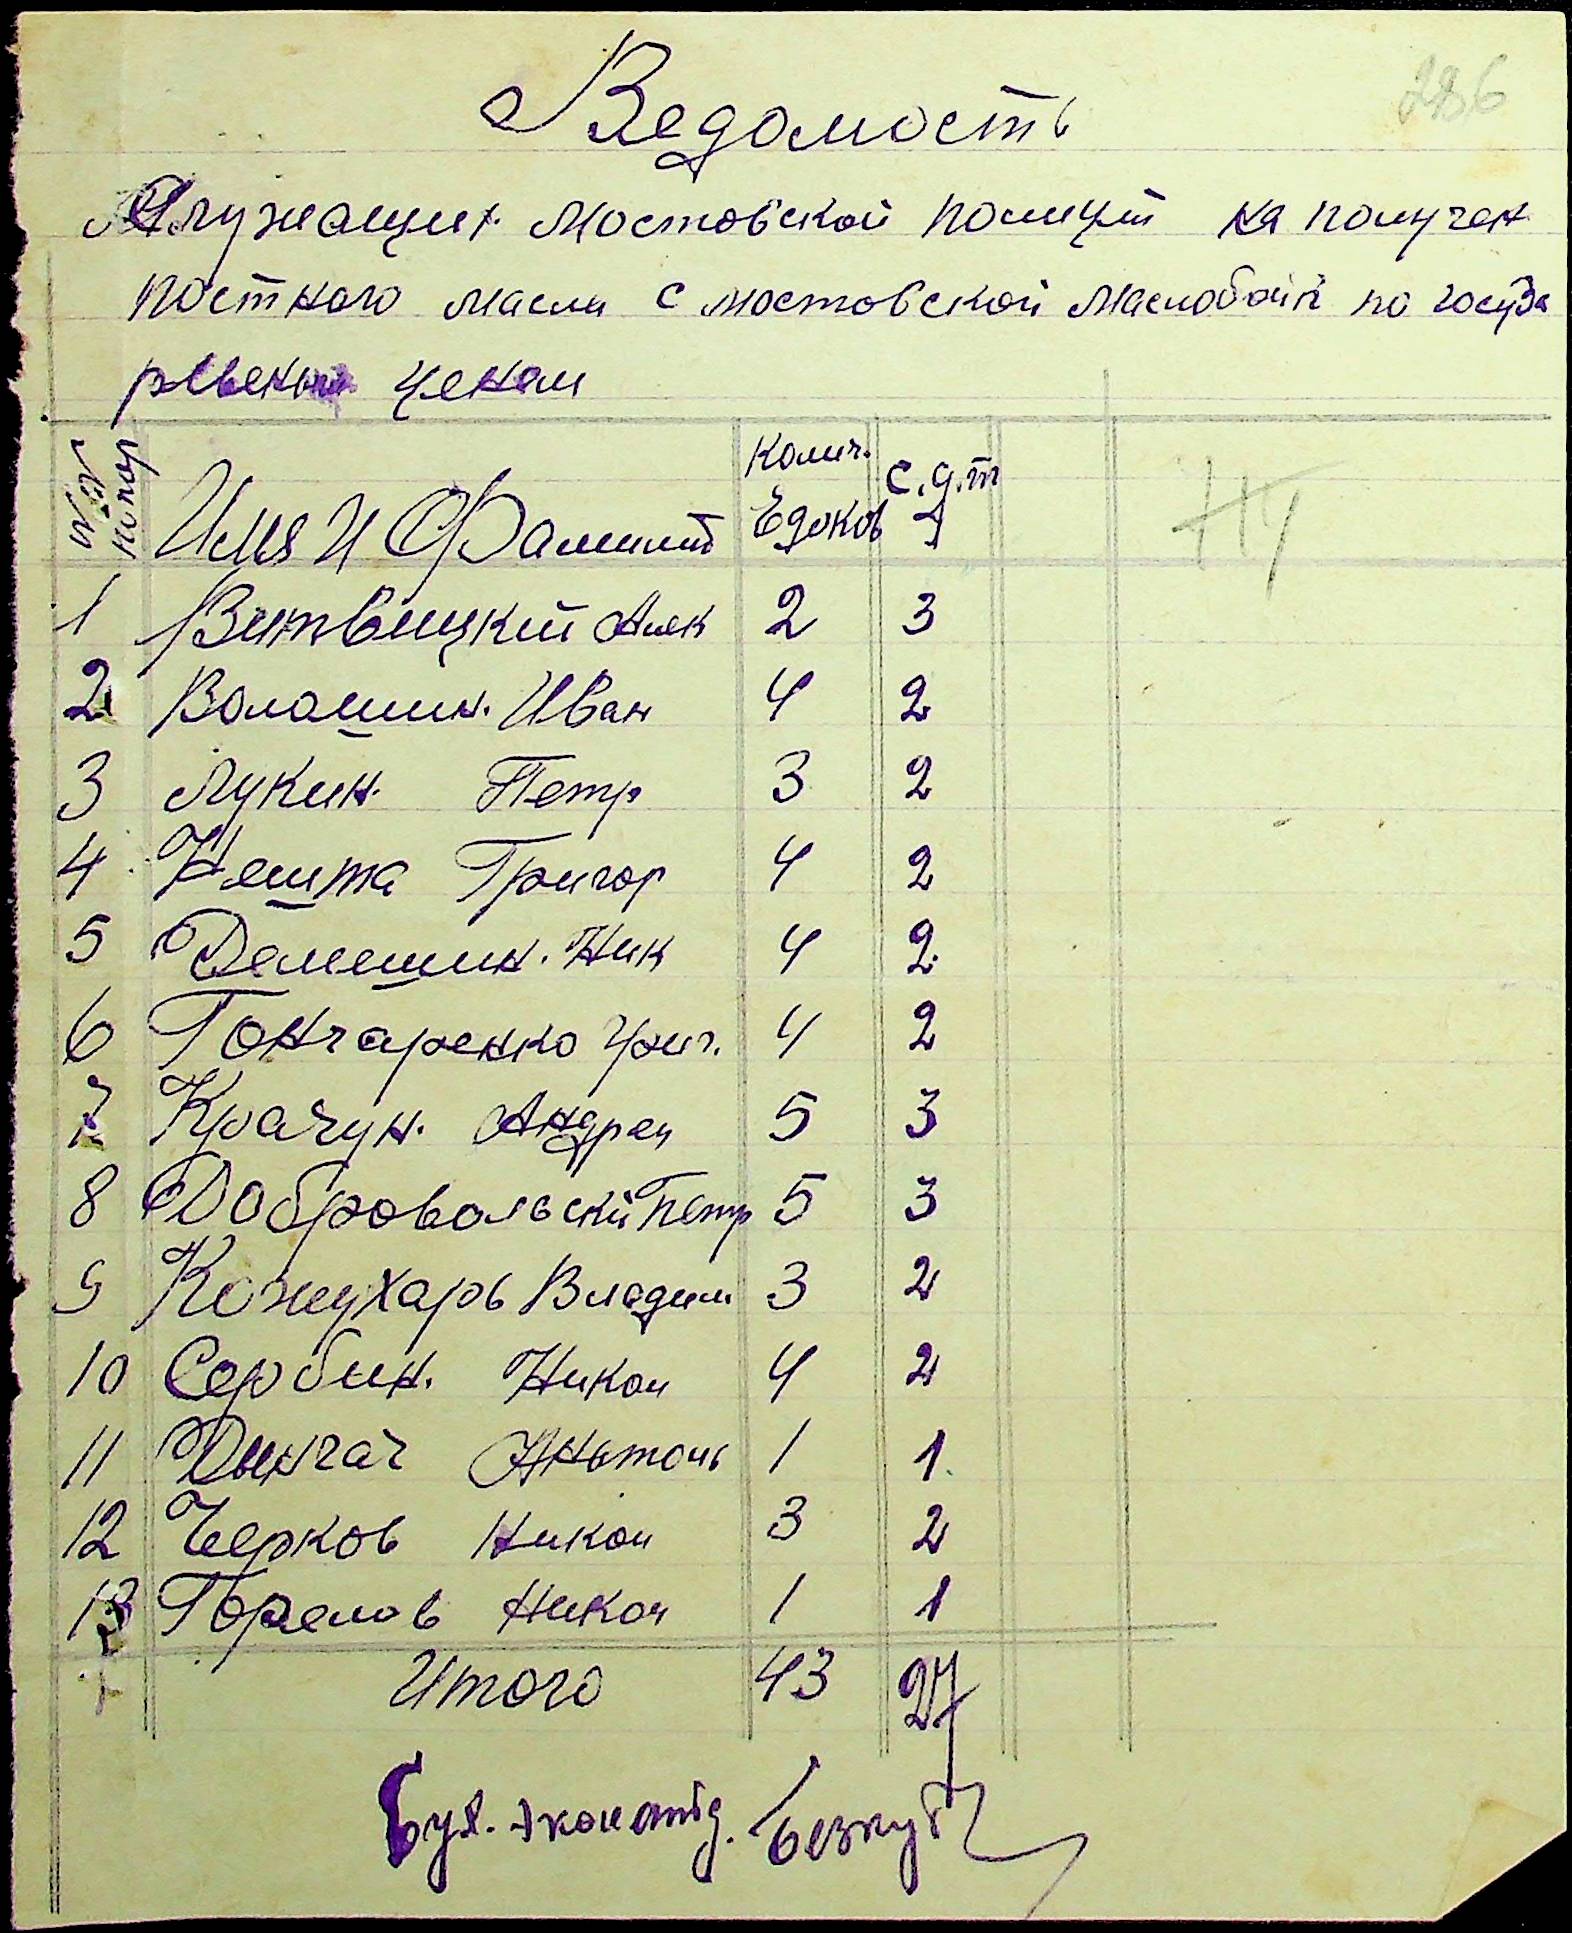 286
Ведомость
Служащих Мостовской полиции на получен
постного масла с мостовской маслобойки по госуда
рствен ценам
№№ по пор Имя и Фамилия Колич. Едоков с.д.т
1 Витвицкий Алек 2 3
2 Волошин. Иван 4 2
3 Лукин. Петр 3 2
4 Нешта Григор 4 2
5 Демешин. Ник 4 2
6 Гончаренко Григ. 4 2
7 Крачун. Андрей 5 3
8 Добровольский Петр 5 3
9 Кожухарь Владим 3 2
10 Сорбин. Никол 4 2
11 Дынгач Анатоль 1 1
12 Черков Никол 3 2
13 Горелов Никол 1 1
Итого 43 27
Бух.